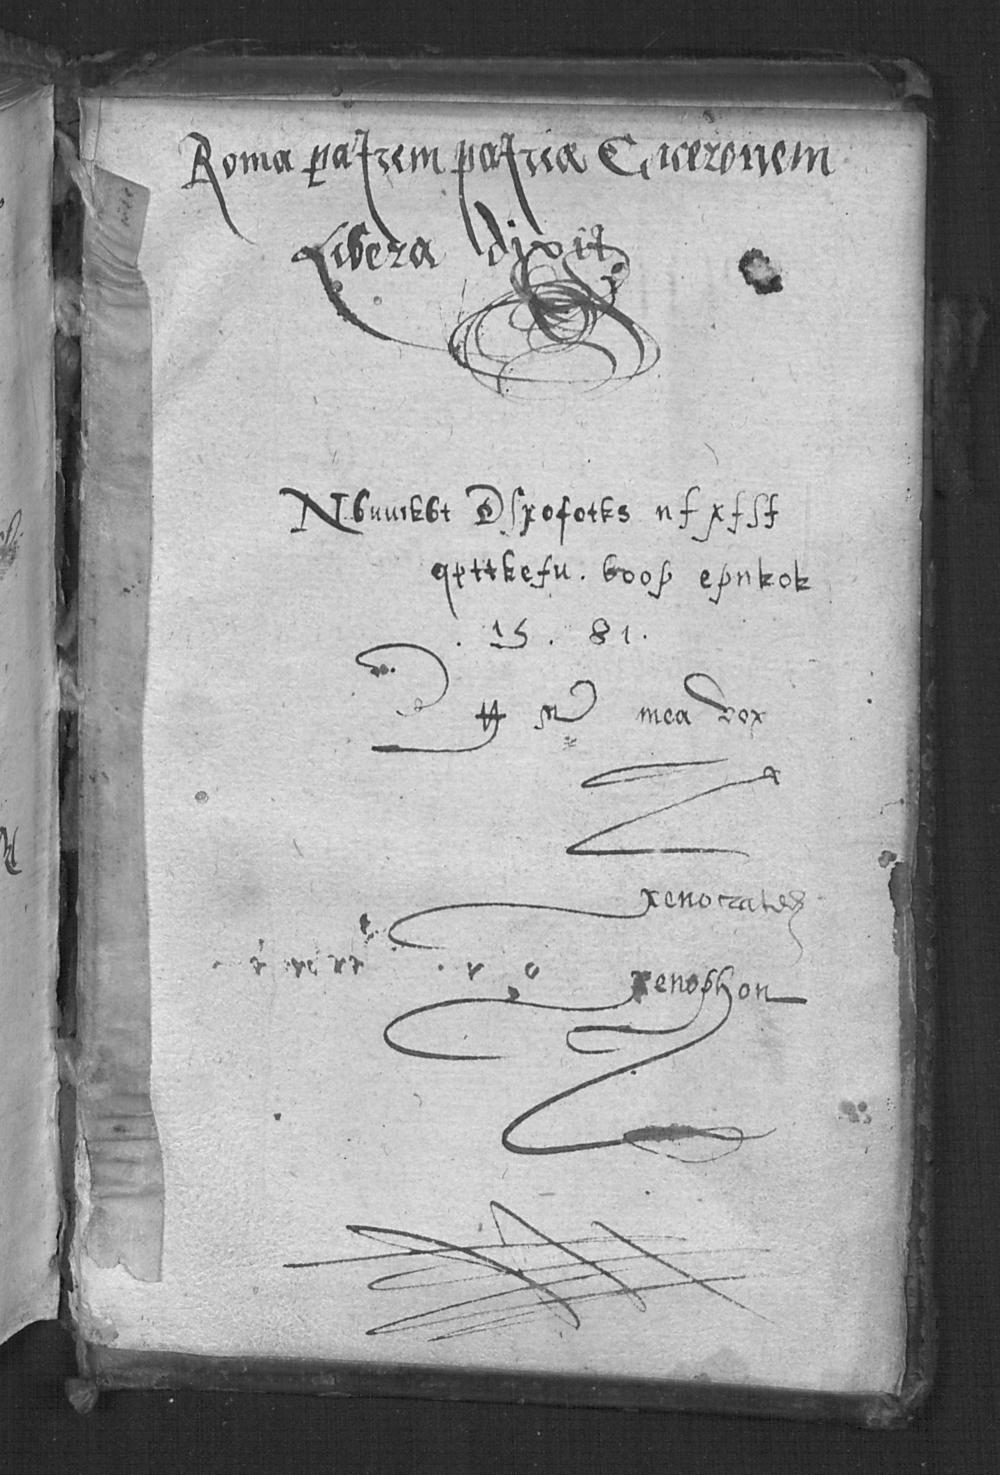 Roma patrem patriæ Ciceronem
Libera dixit
Nbuukbt Dſxofotks nf xfſf
qpttkefu. boop epnkok
. 15 . 81.
mea vox
xenocrates
xenophon